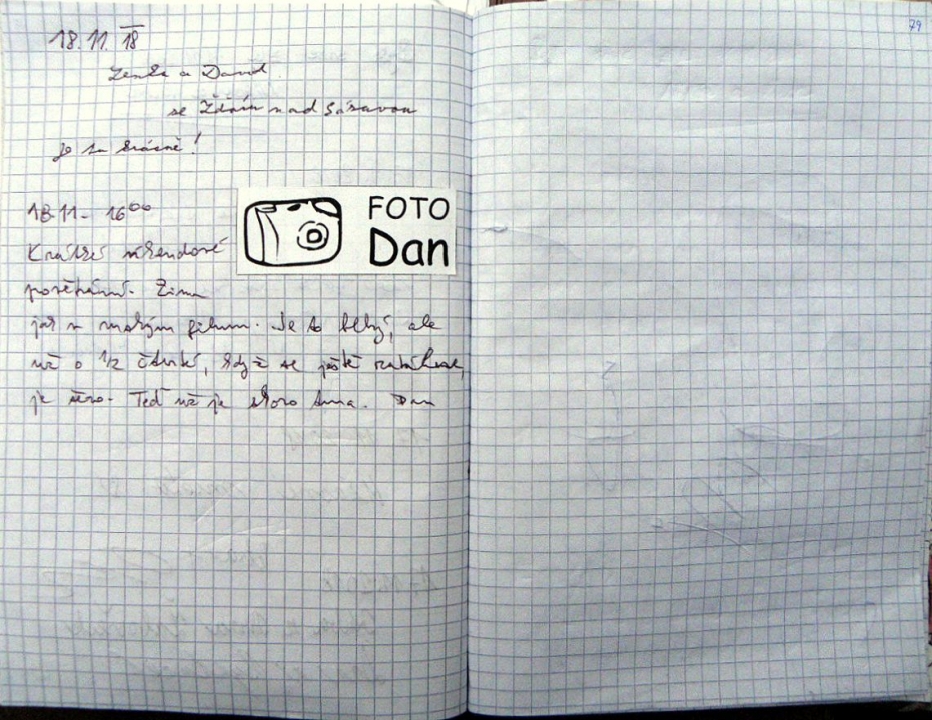 18.11.18
Lenka a David
ze Žďáru nad Sázavou
Je to krásné!
18.11. 16⁰⁰
FOTO
Dan
Krátké víkendové
pobíhání. Zima
jak v ruským filmu. Je to hezký, ale
už o 1/2 čtvrtý, když se ještě
je šero. Teď už je skoro tma. Dan
79